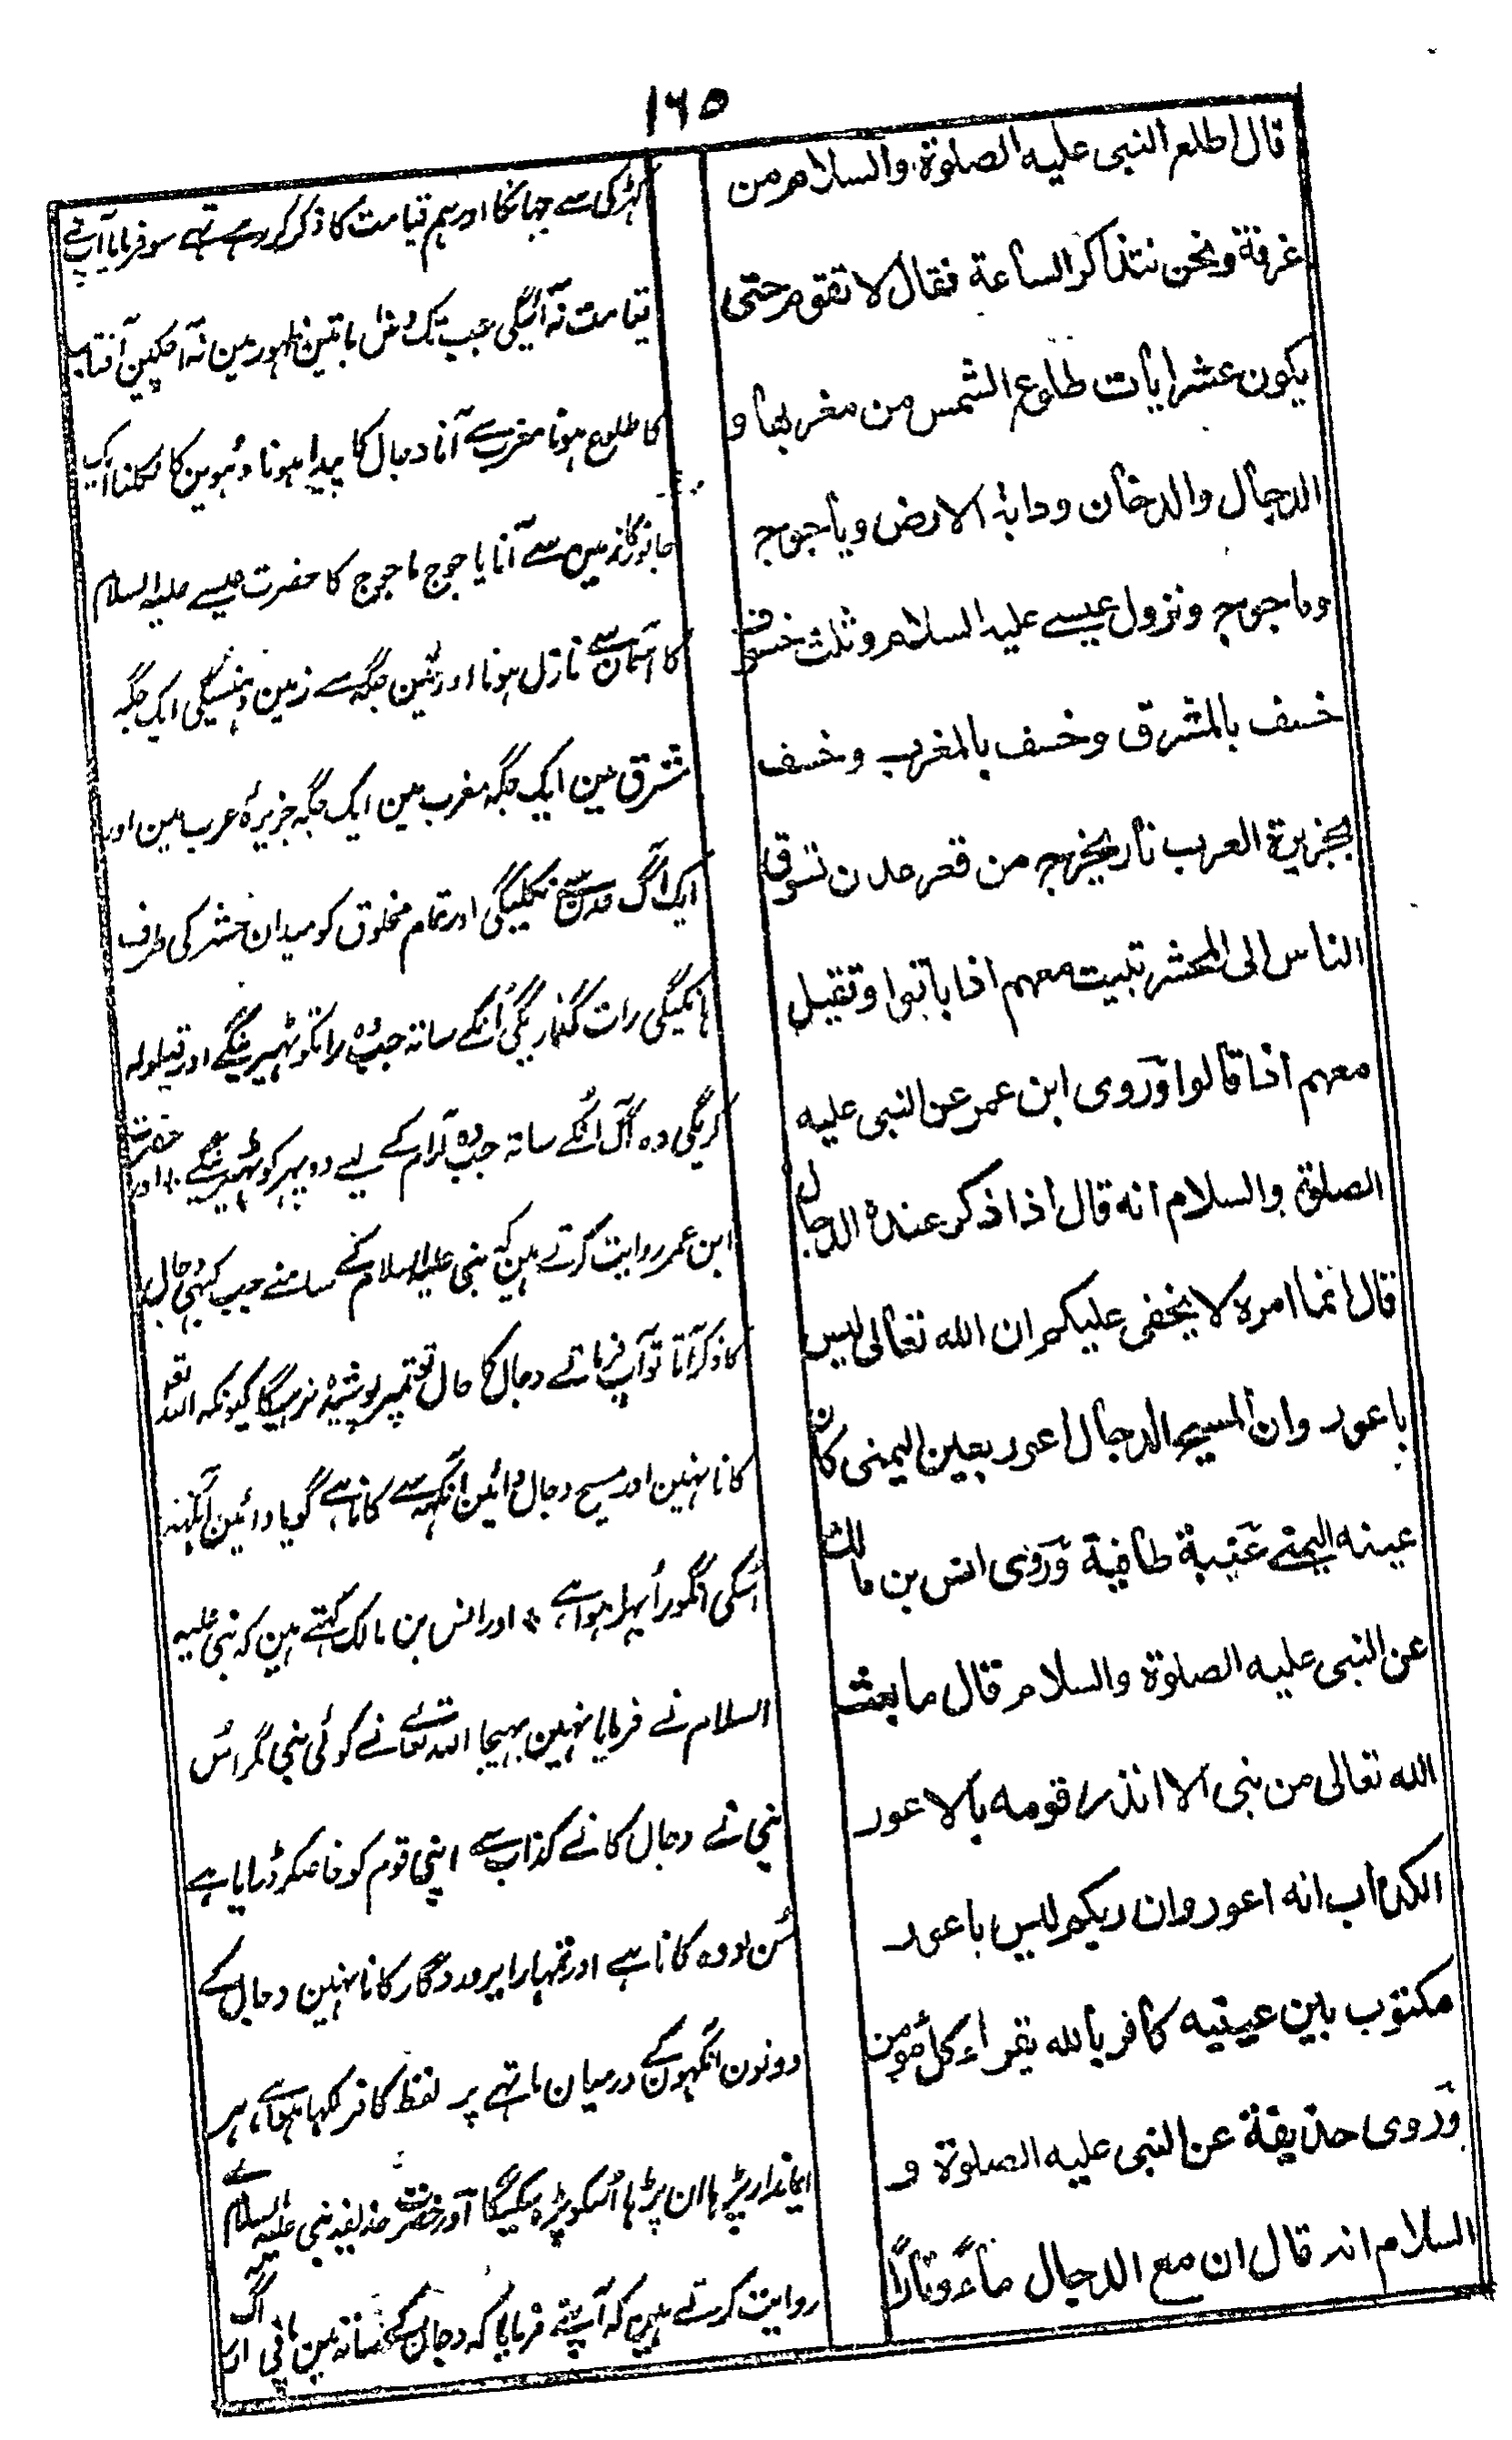 ۱۶۵
قال اطلع النبی علیه الصلوة والسلام من
غرفة ونحن نتذاکر الساعة فقال لا تقوم حتی
یکون عشر ایات طلوع الشمس من مغربها و
الدجال والدخان ودابة الارض ویاجوج
وماجوج ونزول عیسے علیه السلام وثلث خسوف
خسف بالمشرق وخسف بالمغرب وخسف
بجزیرة العرب نار یخرج من قعر عدن تسوق
الناس الی المحشر تبیت معهم اذا باتوا وتقیل
معهم اذا قالوا وروی ابن عمر عن النبی علیه
الصلوة والسلام انه قال اذا ذکر عنده الدجال
قال انما امره لا یخفی علیکم ان الله تعالی لیس
باعور وان المسیح الدجال اعور بعین الیمنی کان
عینه الیمنے عنبة طافیة وروی انس بن مالک
عن النبی علیه الصلوة والسلام قال ما بعث
الله تعالی من نبی الا انذر قومه بالاعور
الکذاب انه اعور وان ربکم لیس باعور
مکتوب بین عینیه کافر بالله یقراء کل مومن
وروی حذیفة عن النبی علیه الصلوة و
السلام انه قال ان مع الدجال ماءً ونارًا
کہڑکی سے جہانکا اور ہم قیامت کا ذکر کر رہے تہے سو فرمایا آپ نے
قیامت نہ آئیگی جب تک دش باتین ظہور مین نہ آچکین آفتاب
کا طلوع ہونا مغرب سے آنا دجال کا پیدا ہونا دہوین کا نکلنا ایک
جانور کا زمین سے آنا یاجوج ماجوج کا حضرت عیسے علیہ السلام
کا آسمان سے نازل ہونا اور تین جگہ سے زمین دہنسیگی ایک جگہ
مشرق مین ایک جگہ مغرب مین ایک جگہ جزیرۂ عرب مین اور
ایک آگ عدن سے نکلیگی اور تمام مخلوق کو میدان حشر کی طرف
ہانکیگی رات گذاریگی اُنکے ساتہ جب وہ راتکو ٹہیرینگے اور قیلولہ
کریگی وہ آگ اُنکے ساتہ جب وہ آرام کے لیے دوپہر کو ٹہیرینگے ۔ اور حضرت
ابن عمر روایت کرتے ہین کہ نبی علیہ السلام کے سامنے جب کبہی دجال
کا ذکر آتا تو آپ فرماتے دجال کا حال تو تمپر پوشیدہ نرہیگا کیونکہ اللہ تعہ
کانا نہین اور مسیح دجال دائین آنکہہ سے کانا ہے گویا دائین آنکہہ
اُسکی انگور اُبہرا ہوا ہے ٭ اور انس بن مالک کہتے ہین کہ نبی علیہ
السلام نے فرمایا نہین بہیجا اللہ تعالے نے کوئی نبی مگر اُس
نبی نے دجال کانے کذاب سے اپنی قوم کو خاصکر ڈرایا ہے
سُن لو وہ کانا ہے اور تمہارا پروردگار کانا نہین دجال کے
دونون آنکہون کے درمیان ماتہے پر لفظ کافر لکہا ہوا ہے، ہر
ایماندار پڑہا ان پڑہا اُسکو پڑہ سکیگا اور حضرت حذیفہ نبی علیہ السلام سے
روایت کرتے ہین کہ آپ نے فرمایا کہ دجال کے ساتہ مین پانی اور آگ